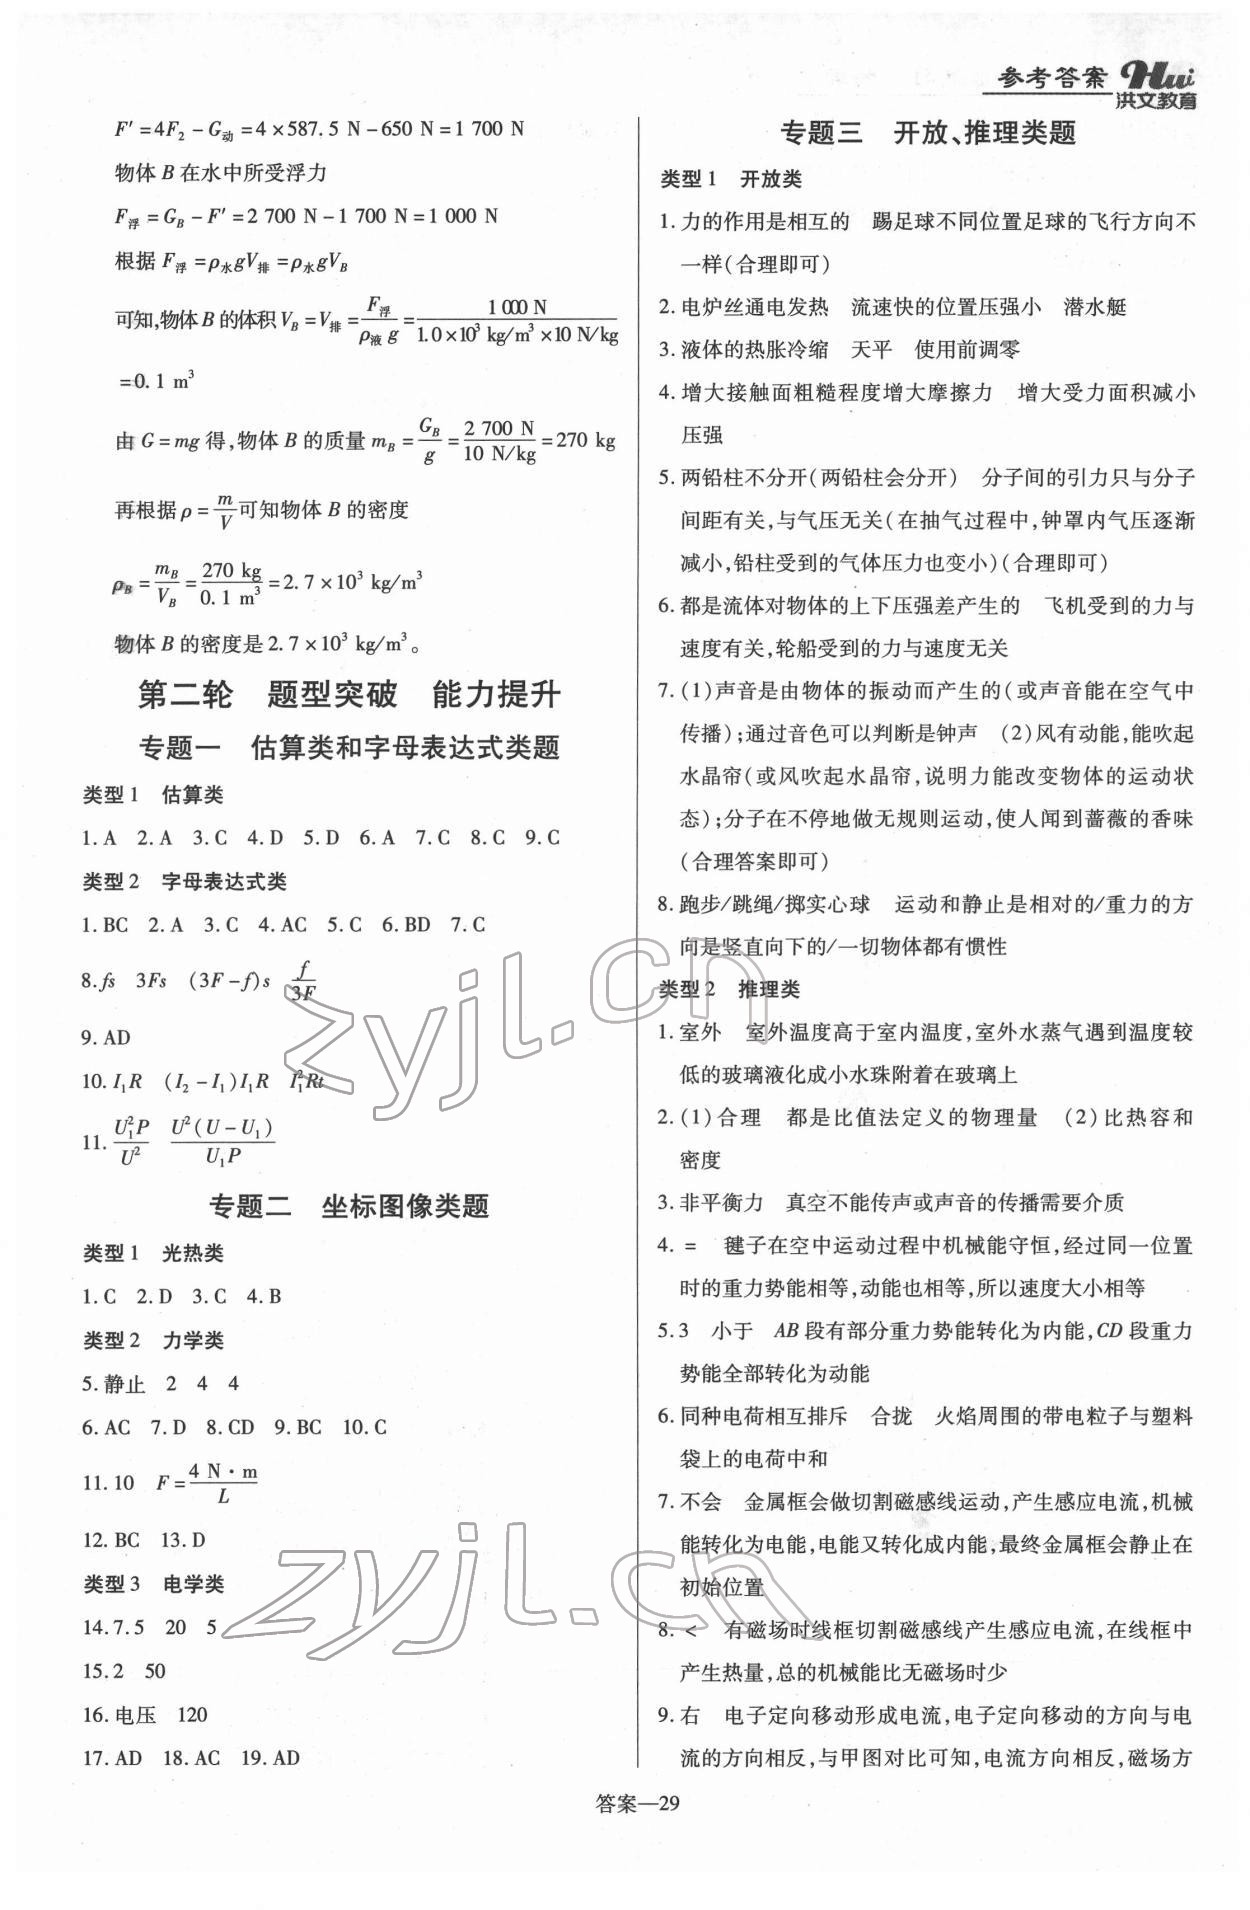 参考答案 Hui
洪文教育
F′=4F₂−G动=4×587.5 N−650 N=1 700 N
物体 B 在水中所受浮力
F浮=G_B−F′=2 700 N−1 700 N=1 000 N
根据 F浮=ρ水gV排=ρ水gV_B
可知,物体 B 的体积 V_B=V排=F浮/(ρ液 g)=1 000 N/(1.0×10³ kg/m³×10 N/kg)
=0.1 m³
由 G=mg 得,物体 B 的质量 m_B=G_B/g=2 700 N/(10 N/kg)=270 kg
再根据 ρ=m/V 可知物体 B 的密度
ρ_B=m_B/V_B=270 kg/0.1 m³=2.7×10³ kg/m³
物体 B 的密度是 2.7×10³ kg/m³。
第二轮 题型突破 能力提升
专题一 估算类和字母表达式类题
类型1 估算类
1. A 2. A 3. C 4. D 5. D 6. A 7. C 8. C 9. C
类型2 字母表达式类
1. BC 2. A 3. C 4. AC 5. C 6. BD 7. C
8. fs 3Fs (3F−f)s f/3F
9. AD
10. I₁R (I₂−I₁)I₁R I₁²Rt
11. U₁²P/U² U²(U−U₁)/(U₁P)
专题二 坐标图像类题
类型1 光热类
1. C 2. D 3. C 4. B
类型2 力学类
5. 静止 2 4 4
6. AC 7. D 8. CD 9. BC 10. C
11. 10 F=4 N·m/L
12. BC 13. D
类型3 电学类
14. 7.5 20 5
15. 2 50
16. 电压 120
17. AD 18. AC 19. AD
专题三 开放、推理类题
类型1 开放类
1. 力的作用是相互的 踢足球不同位置足球的飞行方向不
一样(合理即可)
2. 电炉丝通电发热 流速快的位置压强小 潜水艇
3. 液体的热胀冷缩 天平 使用前调零
4. 增大接触面粗糙程度增大摩擦力 增大受力面积减小
压强
5. 两铅柱不分开(两铅柱会分开) 分子间的引力只与分子
间距有关,与气压无关(在抽气过程中,钟罩内气压逐渐
减小,铅柱受到的气体压力也变小)(合理即可)
6. 都是流体对物体的上下压强差产生的 飞机受到的力与
速度有关,轮船受到的力与速度无关
7. (1)声音是由物体的振动而产生的(或声音能在空气中
传播);通过音色可以判断是钟声 (2)风有动能,能吹起
水晶帘(或风吹起水晶帘,说明力能改变物体的运动状
态);分子在不停地做无规则运动,使人闻到蔷薇的香味
(合理答案即可)
8. 跑步/跳绳/掷实心球 运动和静止是相对的/重力的方
向是竖直向下的/一切物体都有惯性
类型2 推理类
1. 室外 室外温度高于室内温度,室外水蒸气遇到温度较
低的玻璃液化成小水珠附着在玻璃上
2. (1)合理 都是比值法定义的物理量 (2)比热容和
密度
3. 非平衡力 真空不能传声或声音的传播需要介质
4. = 毽子在空中运动过程中机械能守恒,经过同一位置
时的重力势能相等,动能也相等,所以速度大小相等
5. 3 小于 AB 段有部分重力势能转化为内能,CD 段重力
势能全部转化为动能
6. 同种电荷相互排斥 合拢 火焰周围的带电粒子与塑料
袋上的电荷中和
7. 不会 金属框会做切割磁感线运动,产生感应电流,机械
能转化为电能,电能又转化成内能,最终金属框会静止在
初始位置
8. < 有磁场时线框切割磁感线产生感应电流,在线框中
产生热量,总的机械能比无磁场时少
9. 右 电子定向移动形成电流,电子定向移动的方向与电
流的方向相反,与甲图对比可知,电流方向相反,磁场方
答案—29
zyjl.cn
zyjl.cn